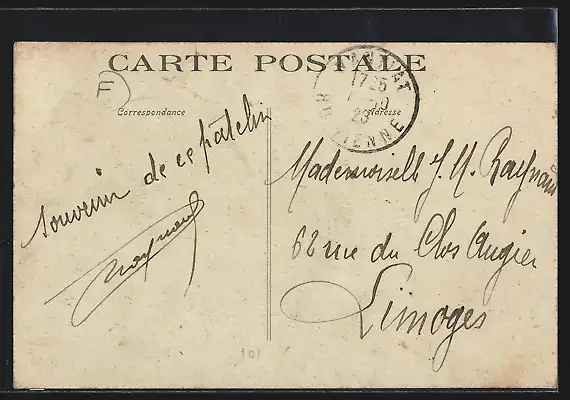 CARTE POSTALE
F
JANVAT
17 25
23
HTE VIENNE
Correspondance
Adresse
souvenir de ce patelin
Raynaud
Mademoiselle J. M. Raynaud
62 rue du Clos Augier
Limoges
101